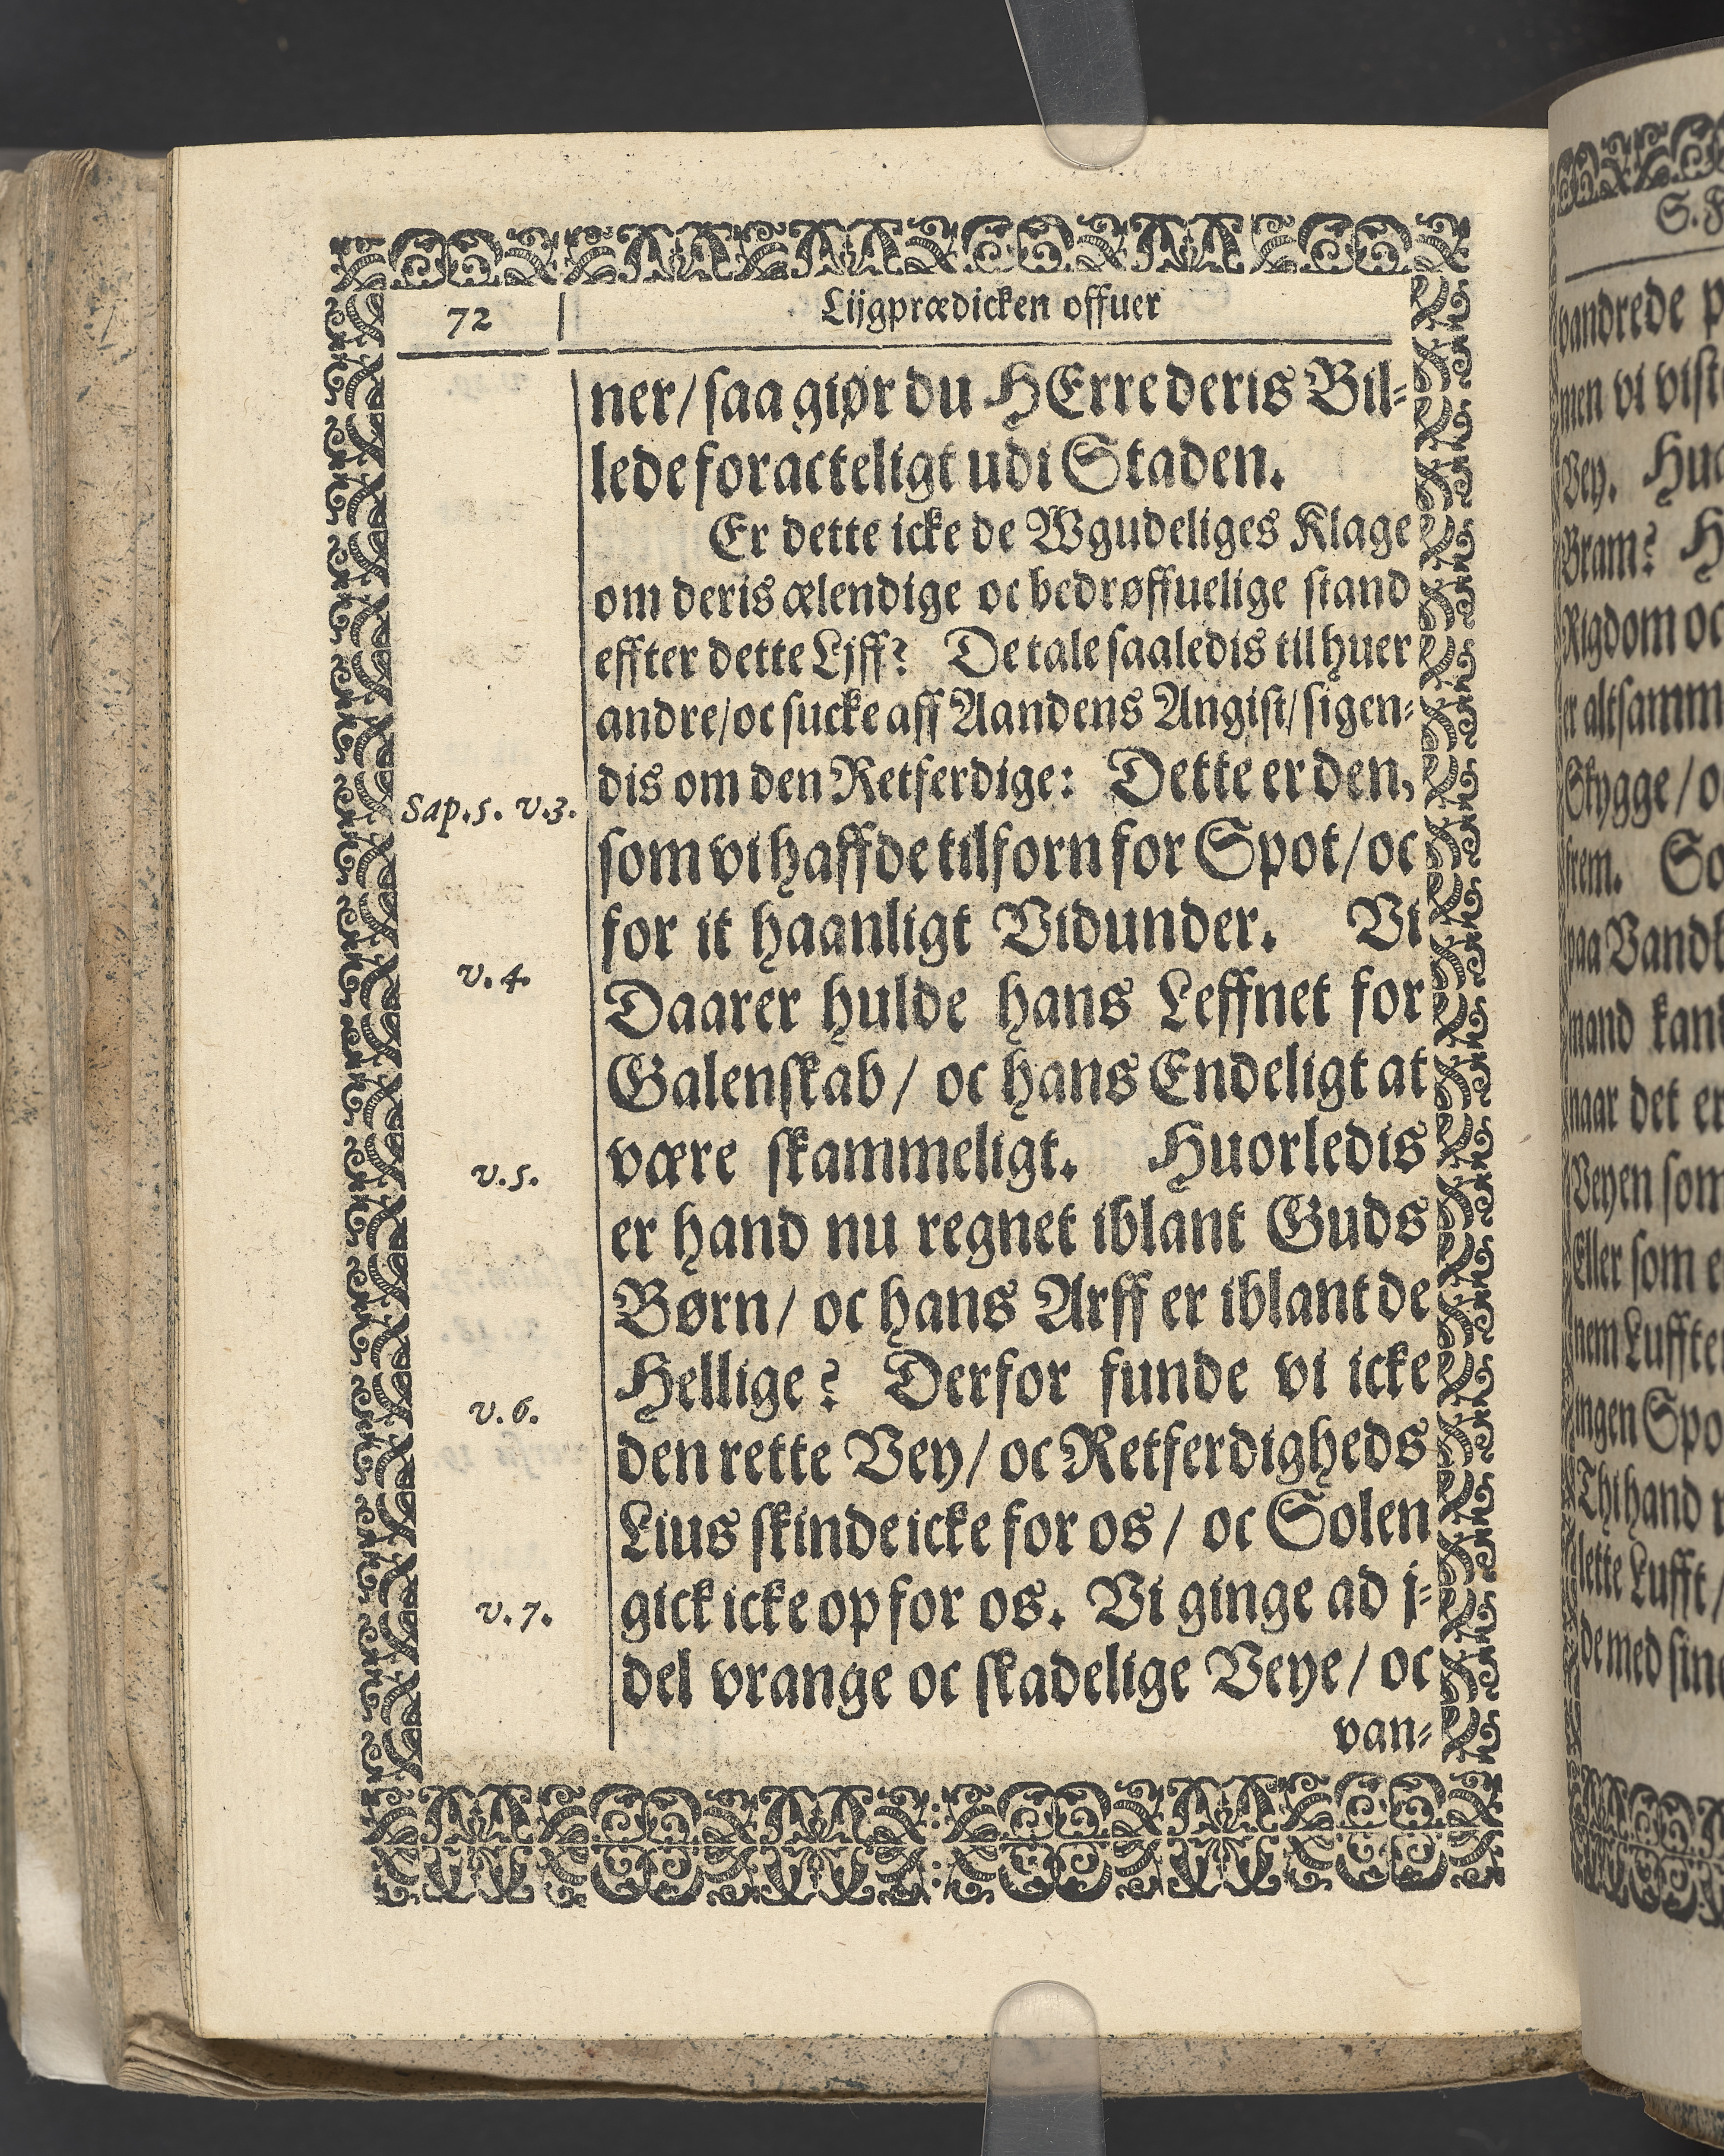 72
Lijgprædicken offuer
ner/ saa giør du HErre deris Bil-
lede foracteligt udi Staden.
Er dette icke de Wgudeliges Klage
om deris ælendige oc bedrøffuelige stand
effter dette Ljff? De tale saaledis til huer
andre/ oc sucke aff Aandens Angist/ sigen-
dis om den Retferdige: Dette er den,
Sap.5. v.3.
som vi haffde tilforn for Spot/ oc
for it haanligt Vidunder. Vi
v.4.
Daarer hulde hans Leffnet for
Galenskab/ oc hans Endeligt at
være skammeligt. Huorledis
v.5.
er hand nu regnet iblant Guds
Børn/ oc hans Arff er iblant de
Hellige? Derfor funde vi icke
v.6.
den rette Vey/ oc Retferdigheds
Lius skinde icke for os/ oc Solen
gick icke op for os. Vi ginge ad j-
v.7.
del vrange oc skadelige Veye/ oc
van-
S.
vandrede
men vi
Vey.
Bram?
Rigdom oc
er altsamm
Skygge/
frem.
paa
mand
naar det er
Veyen som
Eller som
nem
ingen
Thi hand
lette Lufft/
de med